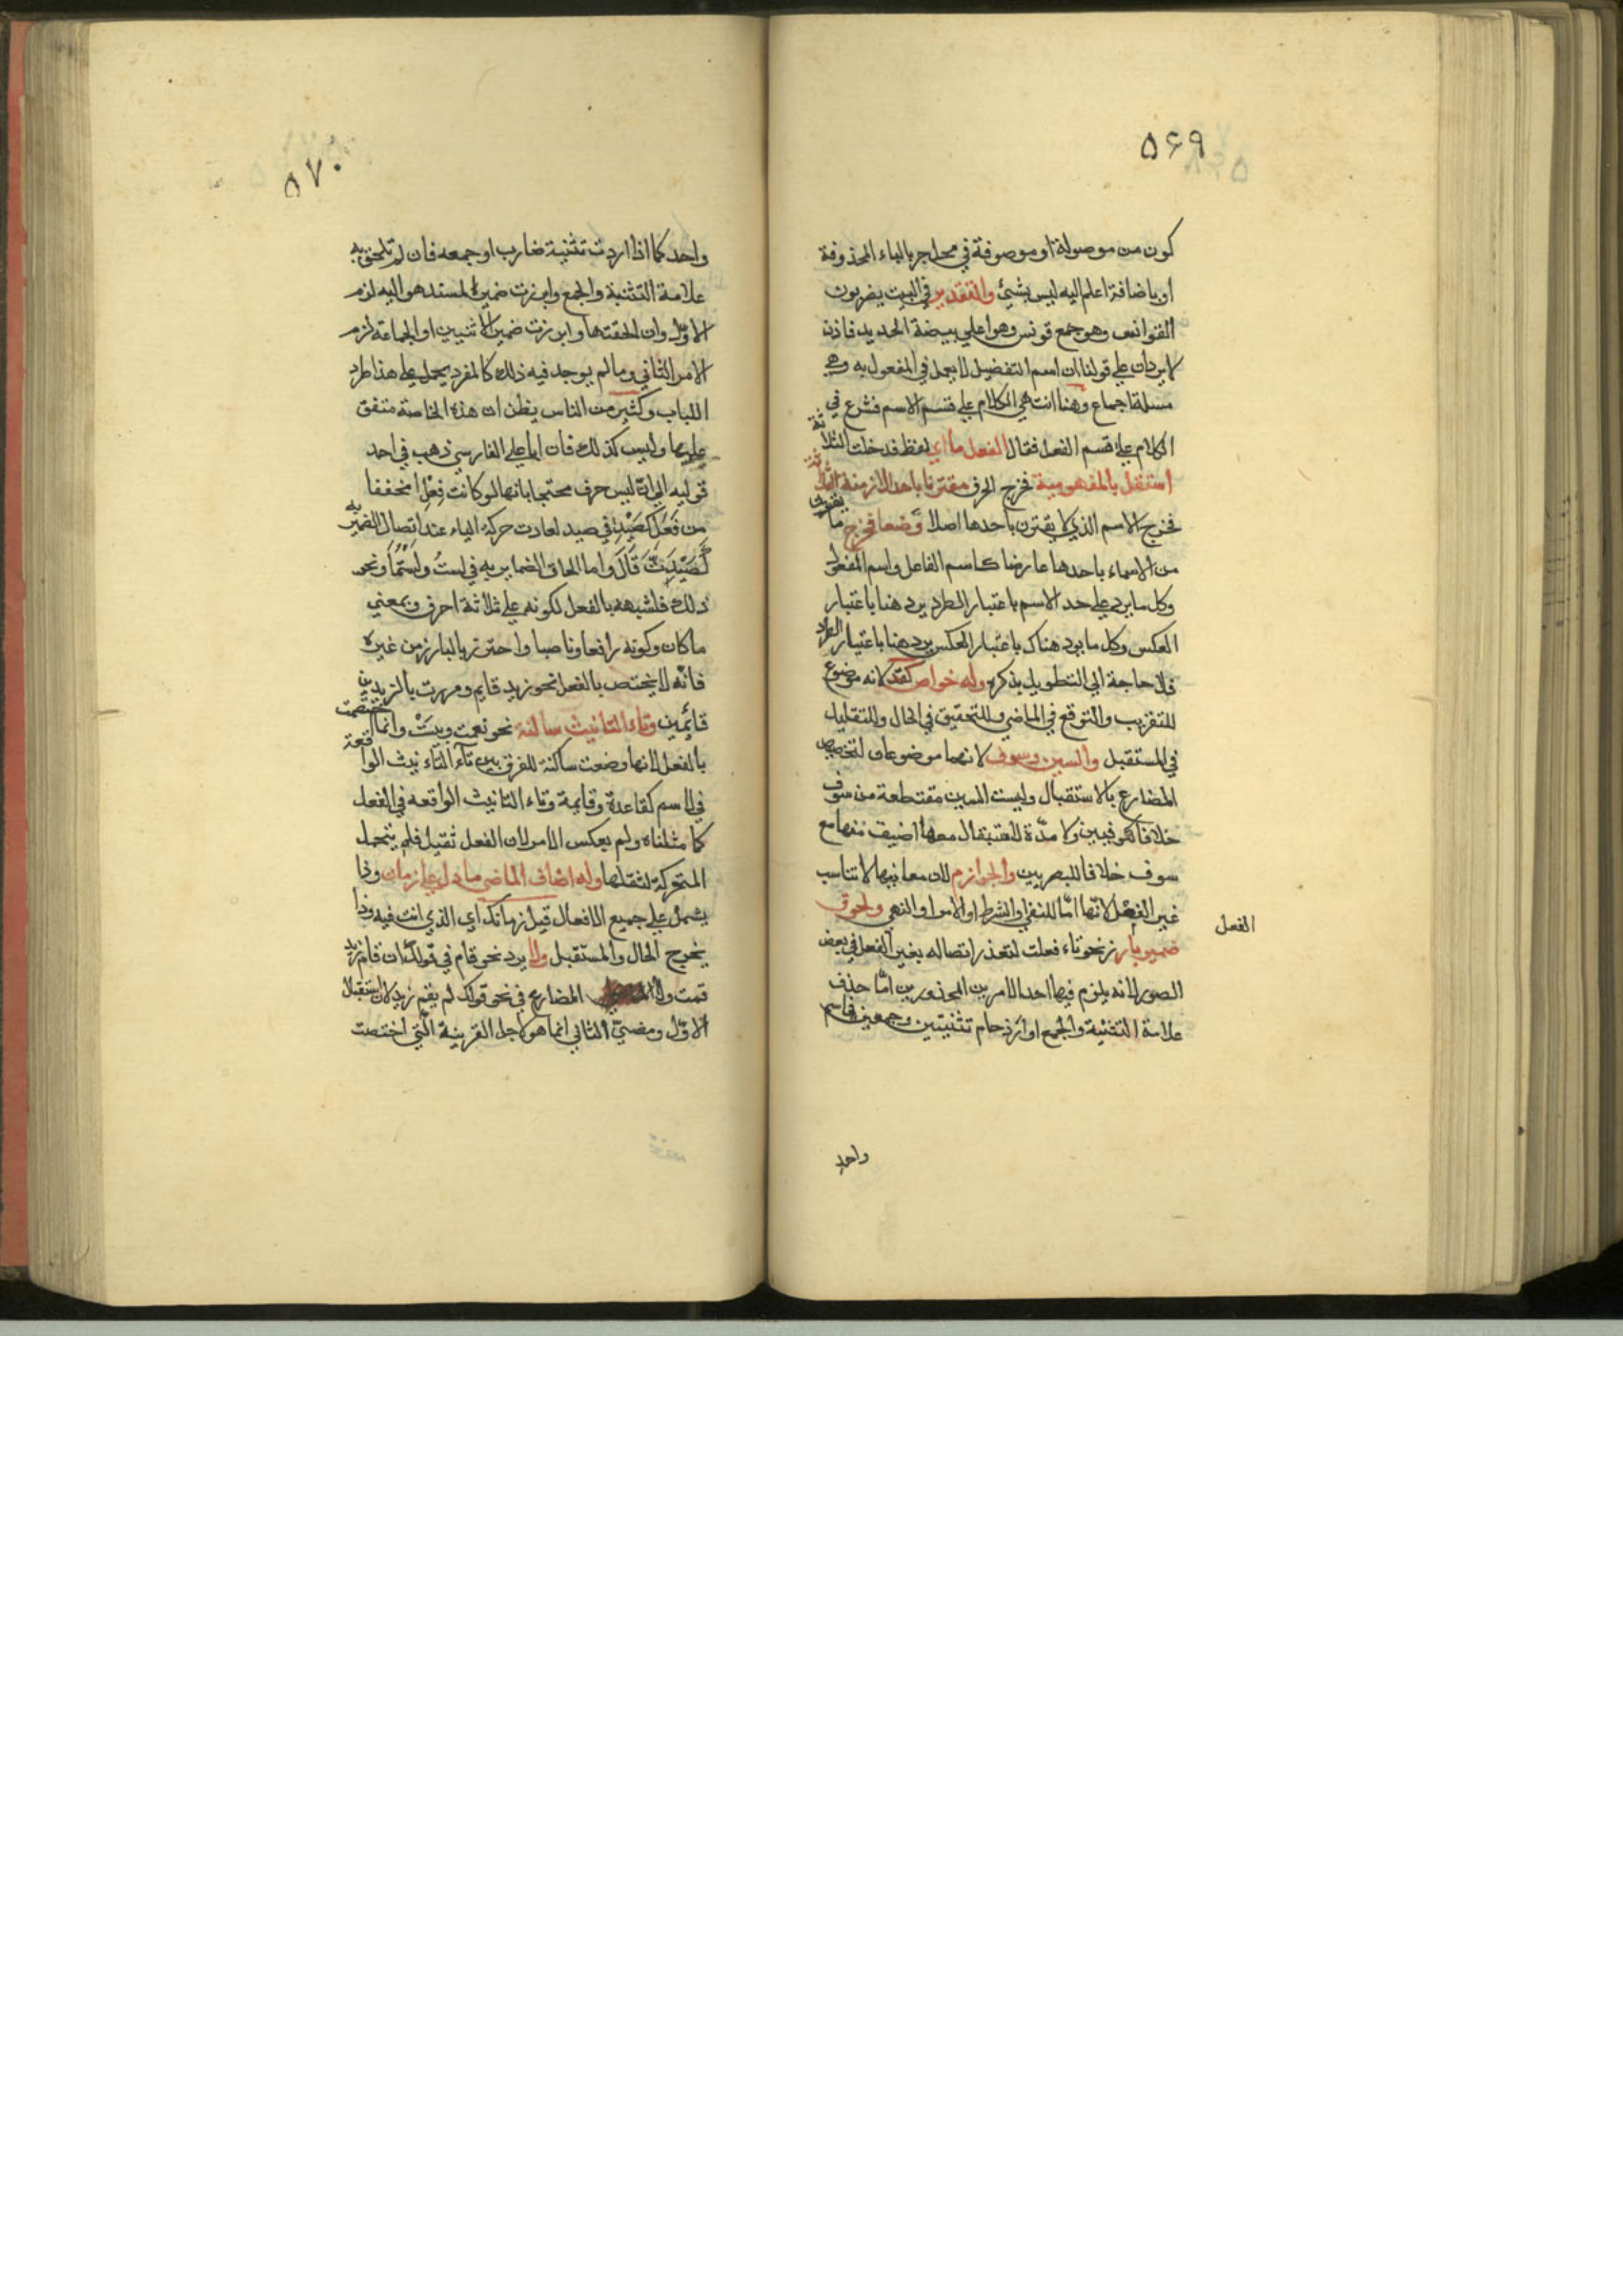 ۵۶۹
كون من موصولة او موصوفة في محل جر بالباء المحذوفة
او باضافة اعلم اليه ليس بشئ والتقدير في البيت يضربون
القوانس وهو جمع قونس وهو اعلي بيضة الحديد فاذن
لا يرد ان علي قولنا ان اسم التفضيل لا يعمل في المفعول به وهي
مسلة اجماع وهنا انتهي الكلام علي قسم الاسم فشرع في
الكلام علي قسم الفعل فقال الفعل ما اي لفظ فدخلت الثلاثة
استقل بالمفهومية فخرج الحرف مقترنا باحد الازمنة الثلاثة
فخرج الاسم الذي لا يقترن باحدها اصلا وضعا فخرج ما يقترن
من الاسماء باحدها عارضا كاسم الفاعل واسم المفعول
وكل ما يرد علي حد الاسم باعتبار الطرد يرد هنا باعتبار
العكس وكل ما يرد هناك باعتبار العكس يرد هنا باعتبار الطرد
فلا حاجة الي التطويل بذكره وله خواص كقد لانه موضوع
للتقريب والتوقع في الماضي وللتحقيق في الحال وللتقليل
في المستقبل والسين وسوف لانهما موضوعان لتخصيص
المضارع بالاستقبال وليست السين مقتطعة من سوف
خلافا لكوفيين ولا مدة الاستقبال معها اضيق منها مع
سوف خلافا للبصريين والجوازم لان معانيها لا تناسب
غير الفعل لانها اما للنفي او الشرط او الامر او النهي ولحوق
الفعل
ضمير بارز نحو تاء فعلت لتعذر اتصاله بغير الفعل في بعض
الصور لانه يلزم فيها احد الامرين المحذورين اما حذف
علامة التثنية والجمع او ازدحام تثنيتين وجمعين في اسم
واحد
۵۷۰
واحد كما اذا اردت تثنية ضارب او جمعه فان لم تلحق به
علامة التثنية والجمع وابرزت ضمير المسند هو اليه لزم
الاول وان الحقتها وابرزت ضمير الاثنين او الجماعة لزم
الامر الثاني وما لم يوجد فيه ذلك كالمفرد يحمل علي هذا طرد
اللباب وكثير من الناس يظن ان هذه الخاصة متفق
عليها وليس كذلك فان ابا علي الفارسي ذهب في احد
قوليه الي ان ليس حرف محتجا بانها لو كانت فعلا مخففا
من فعل كصيد في صيد لعادت حركة الياء عند اتصال الضمير به
كصيدت قال واما الحاق الضماير به في لست ولستما ونحو
ذلك فلشبهه بالفعل لكونه علي ثلاثة احرف وبمعني
ما كان وكونه رافعا وناصبا واحترز بالبارز من غيره
فانه لا يختص بالفعل نحو زيد قايم ومررت بالزيدين
قائمين وتاء التانيث ساكنة نحو نعمت وبئست وانما اختصت
بالفعل لانها وضعت ساكنة للفرق بين تاء التانيث الواقعة
في الاسم كقاعدة وقايمة وتاء التانيث الواقعة في الفعل
كما مثلناه ولم يعكس الامر لان الفعل ثقيل فلم يتحمل
المتحركة لثقلها وله اصناف الماضي ما دل علي زمان وذا
يشمل علي جميع الافعال قبل زمانك اي الذي انت فيه وذا
يخرج الحال والمستقبل ولا يرد نحو قام في قولك ان قام زيد
قمت ولا المضارع في نحو قولك لم يقم زيد لان استقبال
الاول ومضي الثاني انما هو لاجل القرينة التي اختصت